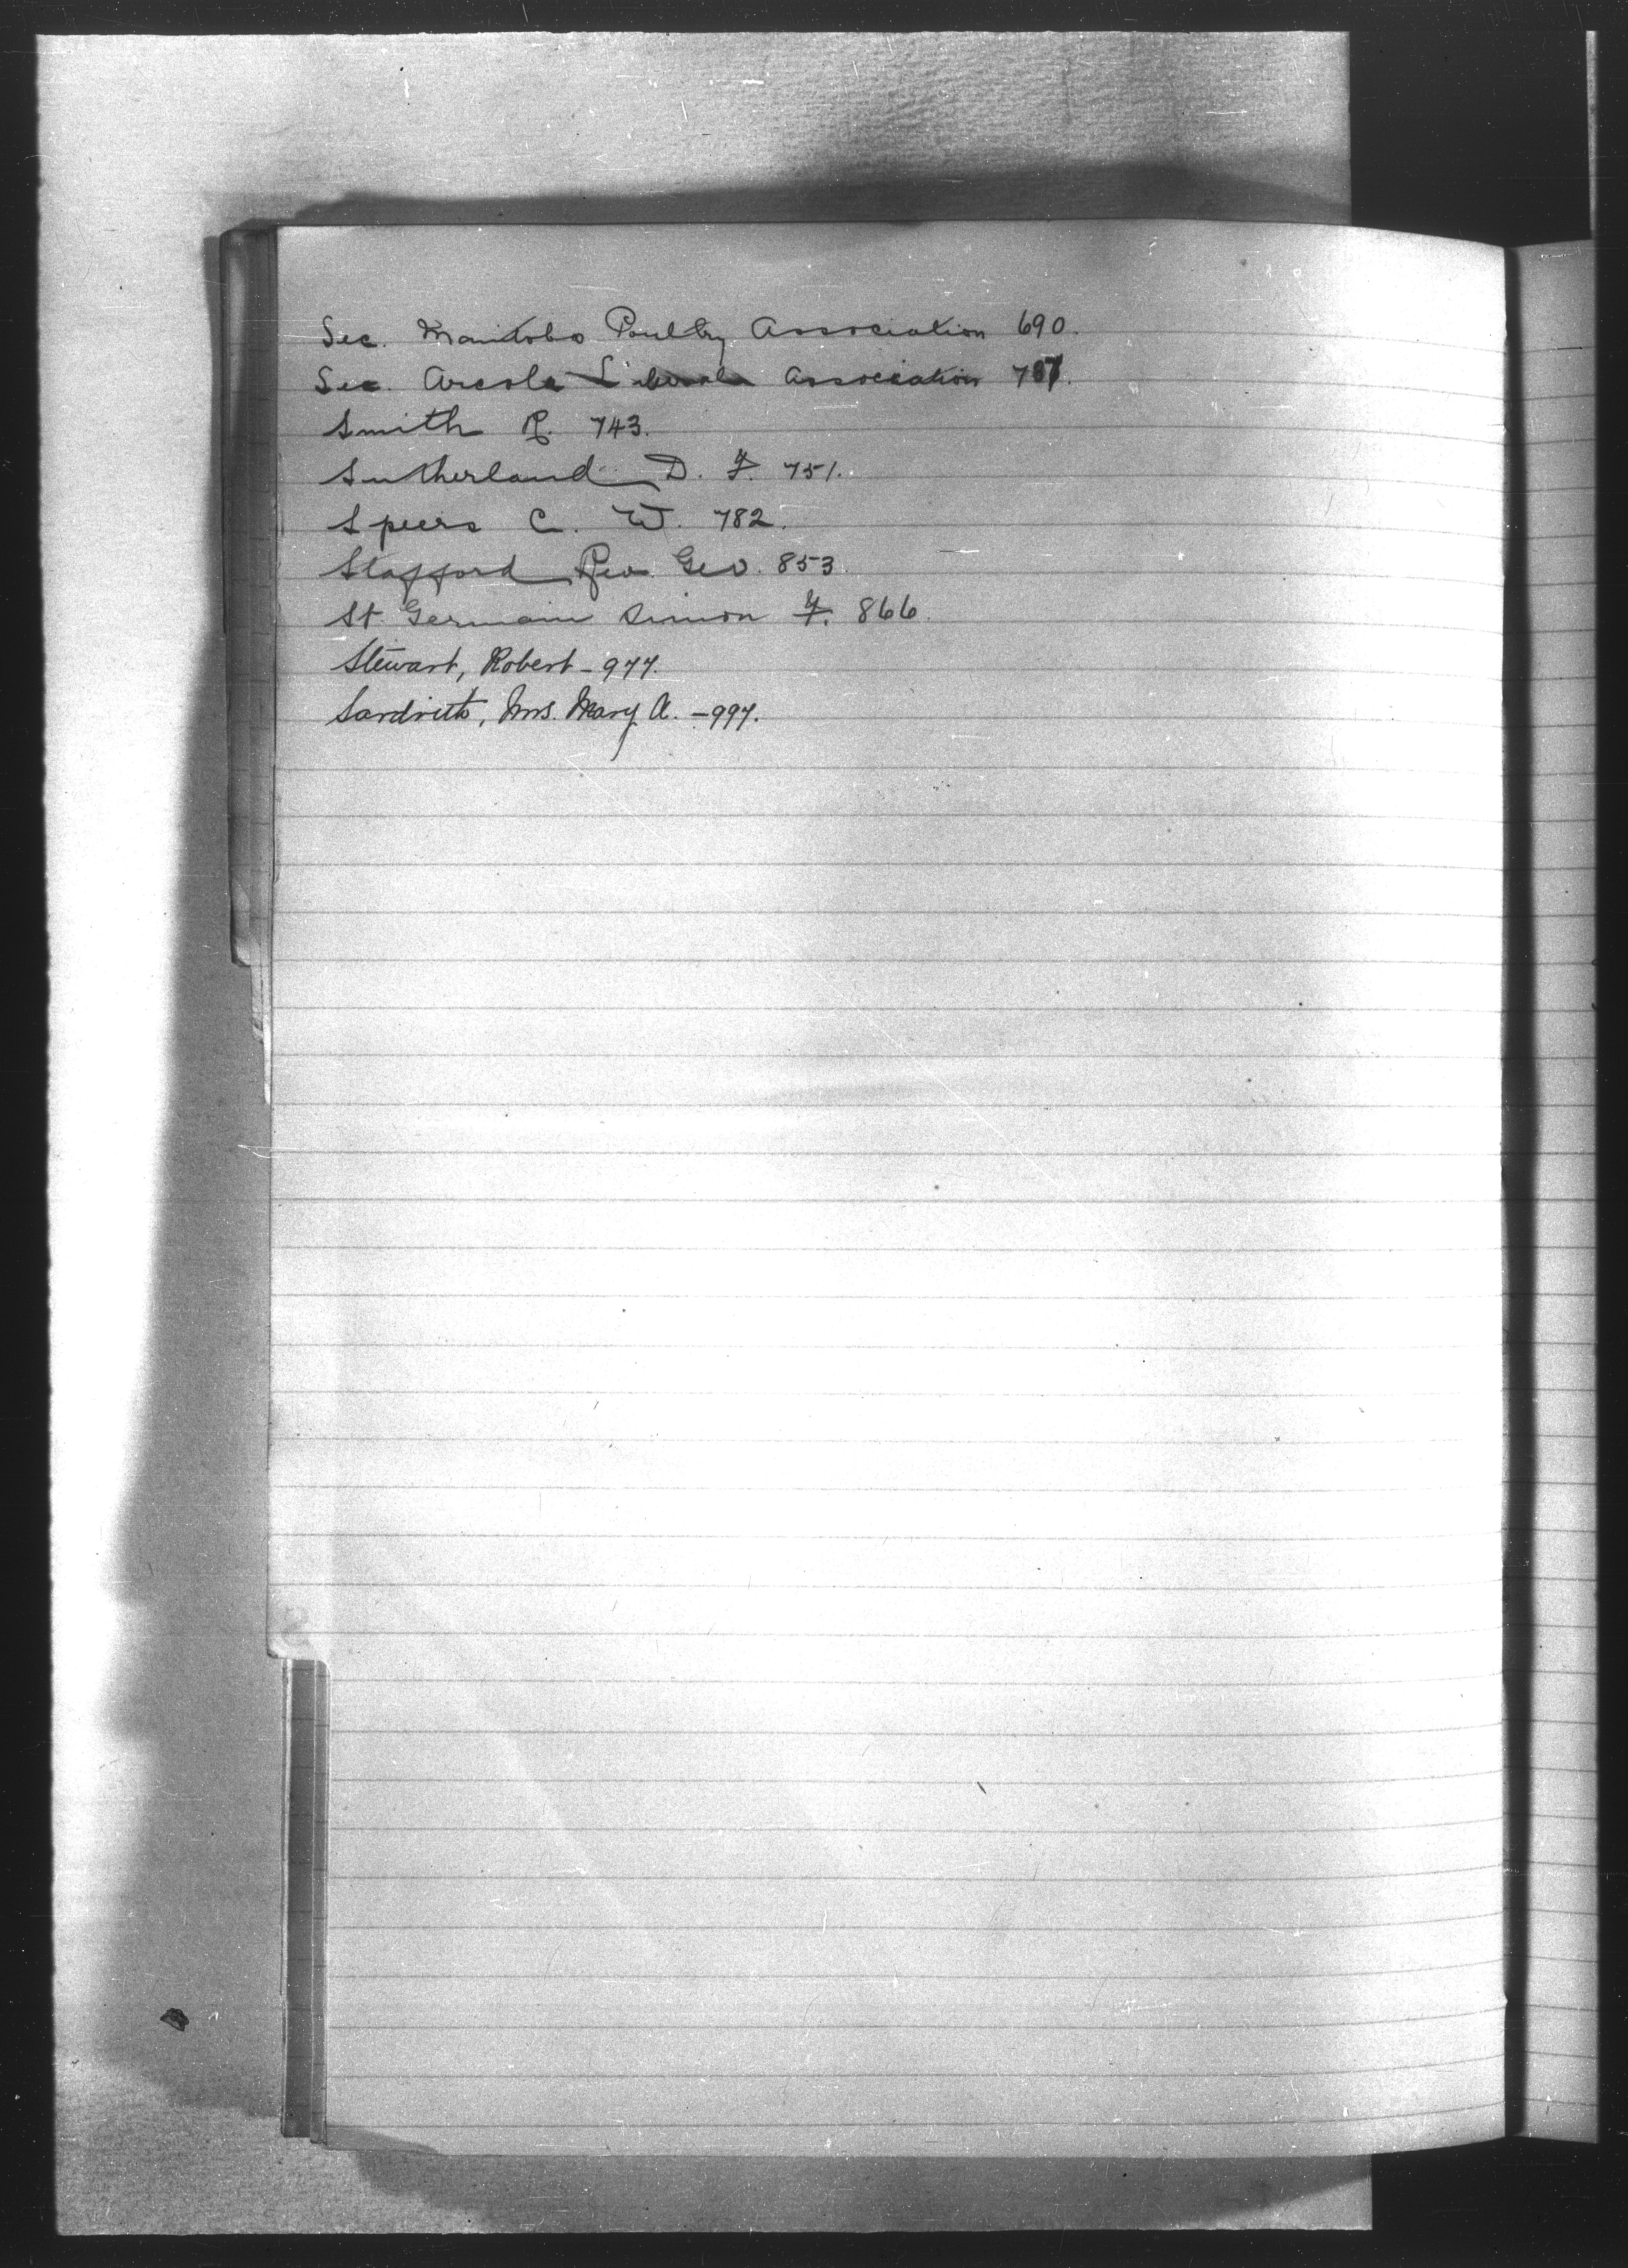 Sec. Manitoba Poultry Association 690.
Sec. Arcola Liberal Association 707.
Smith R. 743.
Sutherland D. F. 751.
Speers C. W. 782.
Stafford Rev. Geo. 853.
St Germain Simon F. 866.
Stewart, Robert - 977.
Mrs. Mary A. - 997.